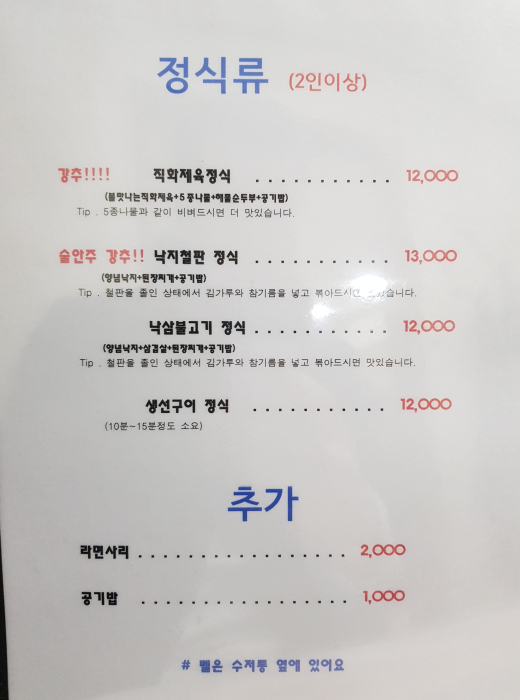 정식류 (2인이상)
강추!!!! 직화제육정식 . . . . . . . . . . . 12,000
(불맛나는직화제육+5종나물+해물순두부+공기밥)
Tip . 5종나물과 같이 비벼드시면 더 맛있습니다.
술안주 강추!! 낙지철판 정식 . . . . . . . . . . . 13,000
(양념낙지+된장찌개+공기밥)
Tip . 철판을 졸인 상태에서 김가루와 참기름을 넣고 볶아드시면 맛있습니다.
낙삼불고기 정식 . . . . . . . . . . . 12,000
(양념낙지+삼겹살+된장찌개+공기밥)
Tip . 철판을 졸인 상태에서 김가루와 참기름을 넣고 볶아드시면 맛있습니다.
생선구이 정식 . . . . . . . . . . . 12,000
(10분~15분정도 소요)
추가
라면사리 . . . . . . . . . . . . . . . . . 2,000
공기밥 . . . . . . . . . . . . . . . . . 1,000
# 벨은 수저통 옆에 있어요